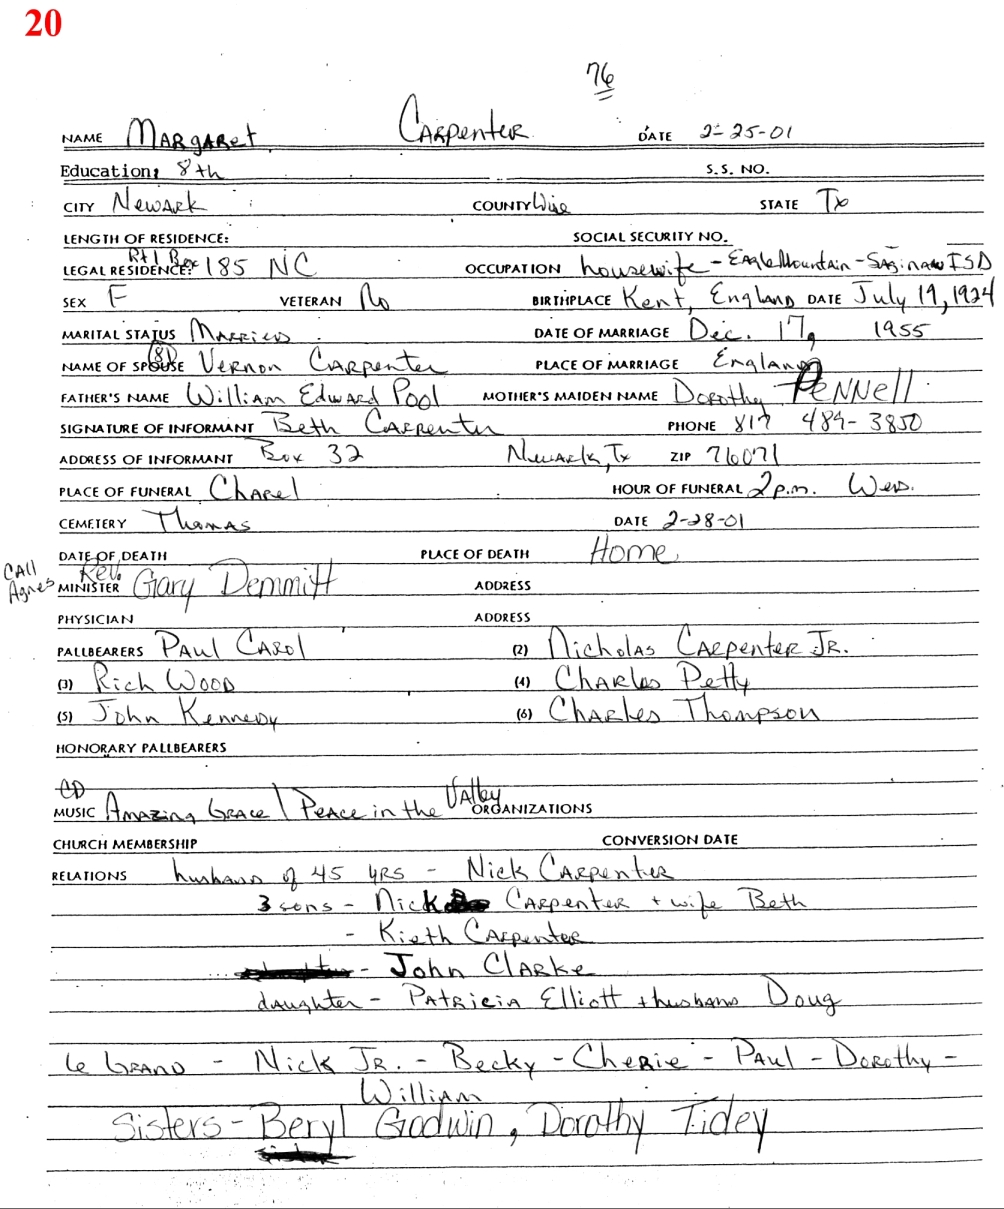 20
76
NAME Margaret Carpenter DATE 2-25-01
Education: 8th S.S. NO.
CITY Newark COUNTY Wise STATE Tx
LENGTH OF RESIDENCE: SOCIAL SECURITY NO.
Rt 1 Box
LEGAL RESIDENCE: 185 NC OCCUPATION housewife - Eagle Mountain - Saginaw ISD
SEX F VETERAN No BIRTHPLACE Kent, England DATE July 19, 1924
MARITAL STATUS Married DATE OF MARRIAGE Dec. 17, 1955
NAME OF SPOUSE (81) Vernon Carpenter PLACE OF MARRIAGE England
FATHER'S NAME William Edward Pool MOTHER'S MAIDEN NAME Dorothy Pennell
SIGNATURE OF INFORMANT Beth Carpenter PHONE 817 489-3850
ADDRESS OF INFORMANT Box 32 Newark, Tx ZIP 76071
PLACE OF FUNERAL Chapel HOUR OF FUNERAL 2 p.m. Wed.
CEMETERY Thomas DATE 2-28-01
DATE OF DEATH PLACE OF DEATH Home
Call Agnes
MINISTER Rev. Gary Demmitt ADDRESS
PHYSICIAN ADDRESS
PALLBEARERS Paul Carol (2) Nicholas Carpenter Jr.
(3) Rich Wood (4) Charles Petty
(5) John Kennedy (6) Charles Thompson
HONORARY PALLBEARERS
CD
MUSIC Amazing Grace | Peace in the Valley ORGANIZATIONS
CHURCH MEMBERSHIP CONVERSION DATE
RELATIONS husband of 45 yrs - Nick Carpenter
3 sons - Nick Carpenter + wife Beth
- Kieth Carpenter
- John Clarke
daughter - Patricia Elliott + husband Doug
6 Grand - Nick Jr. - Becky - Cherie - Paul - Dorothy -
William
Sisters - Beryl Godwin, Dorothy Tidey